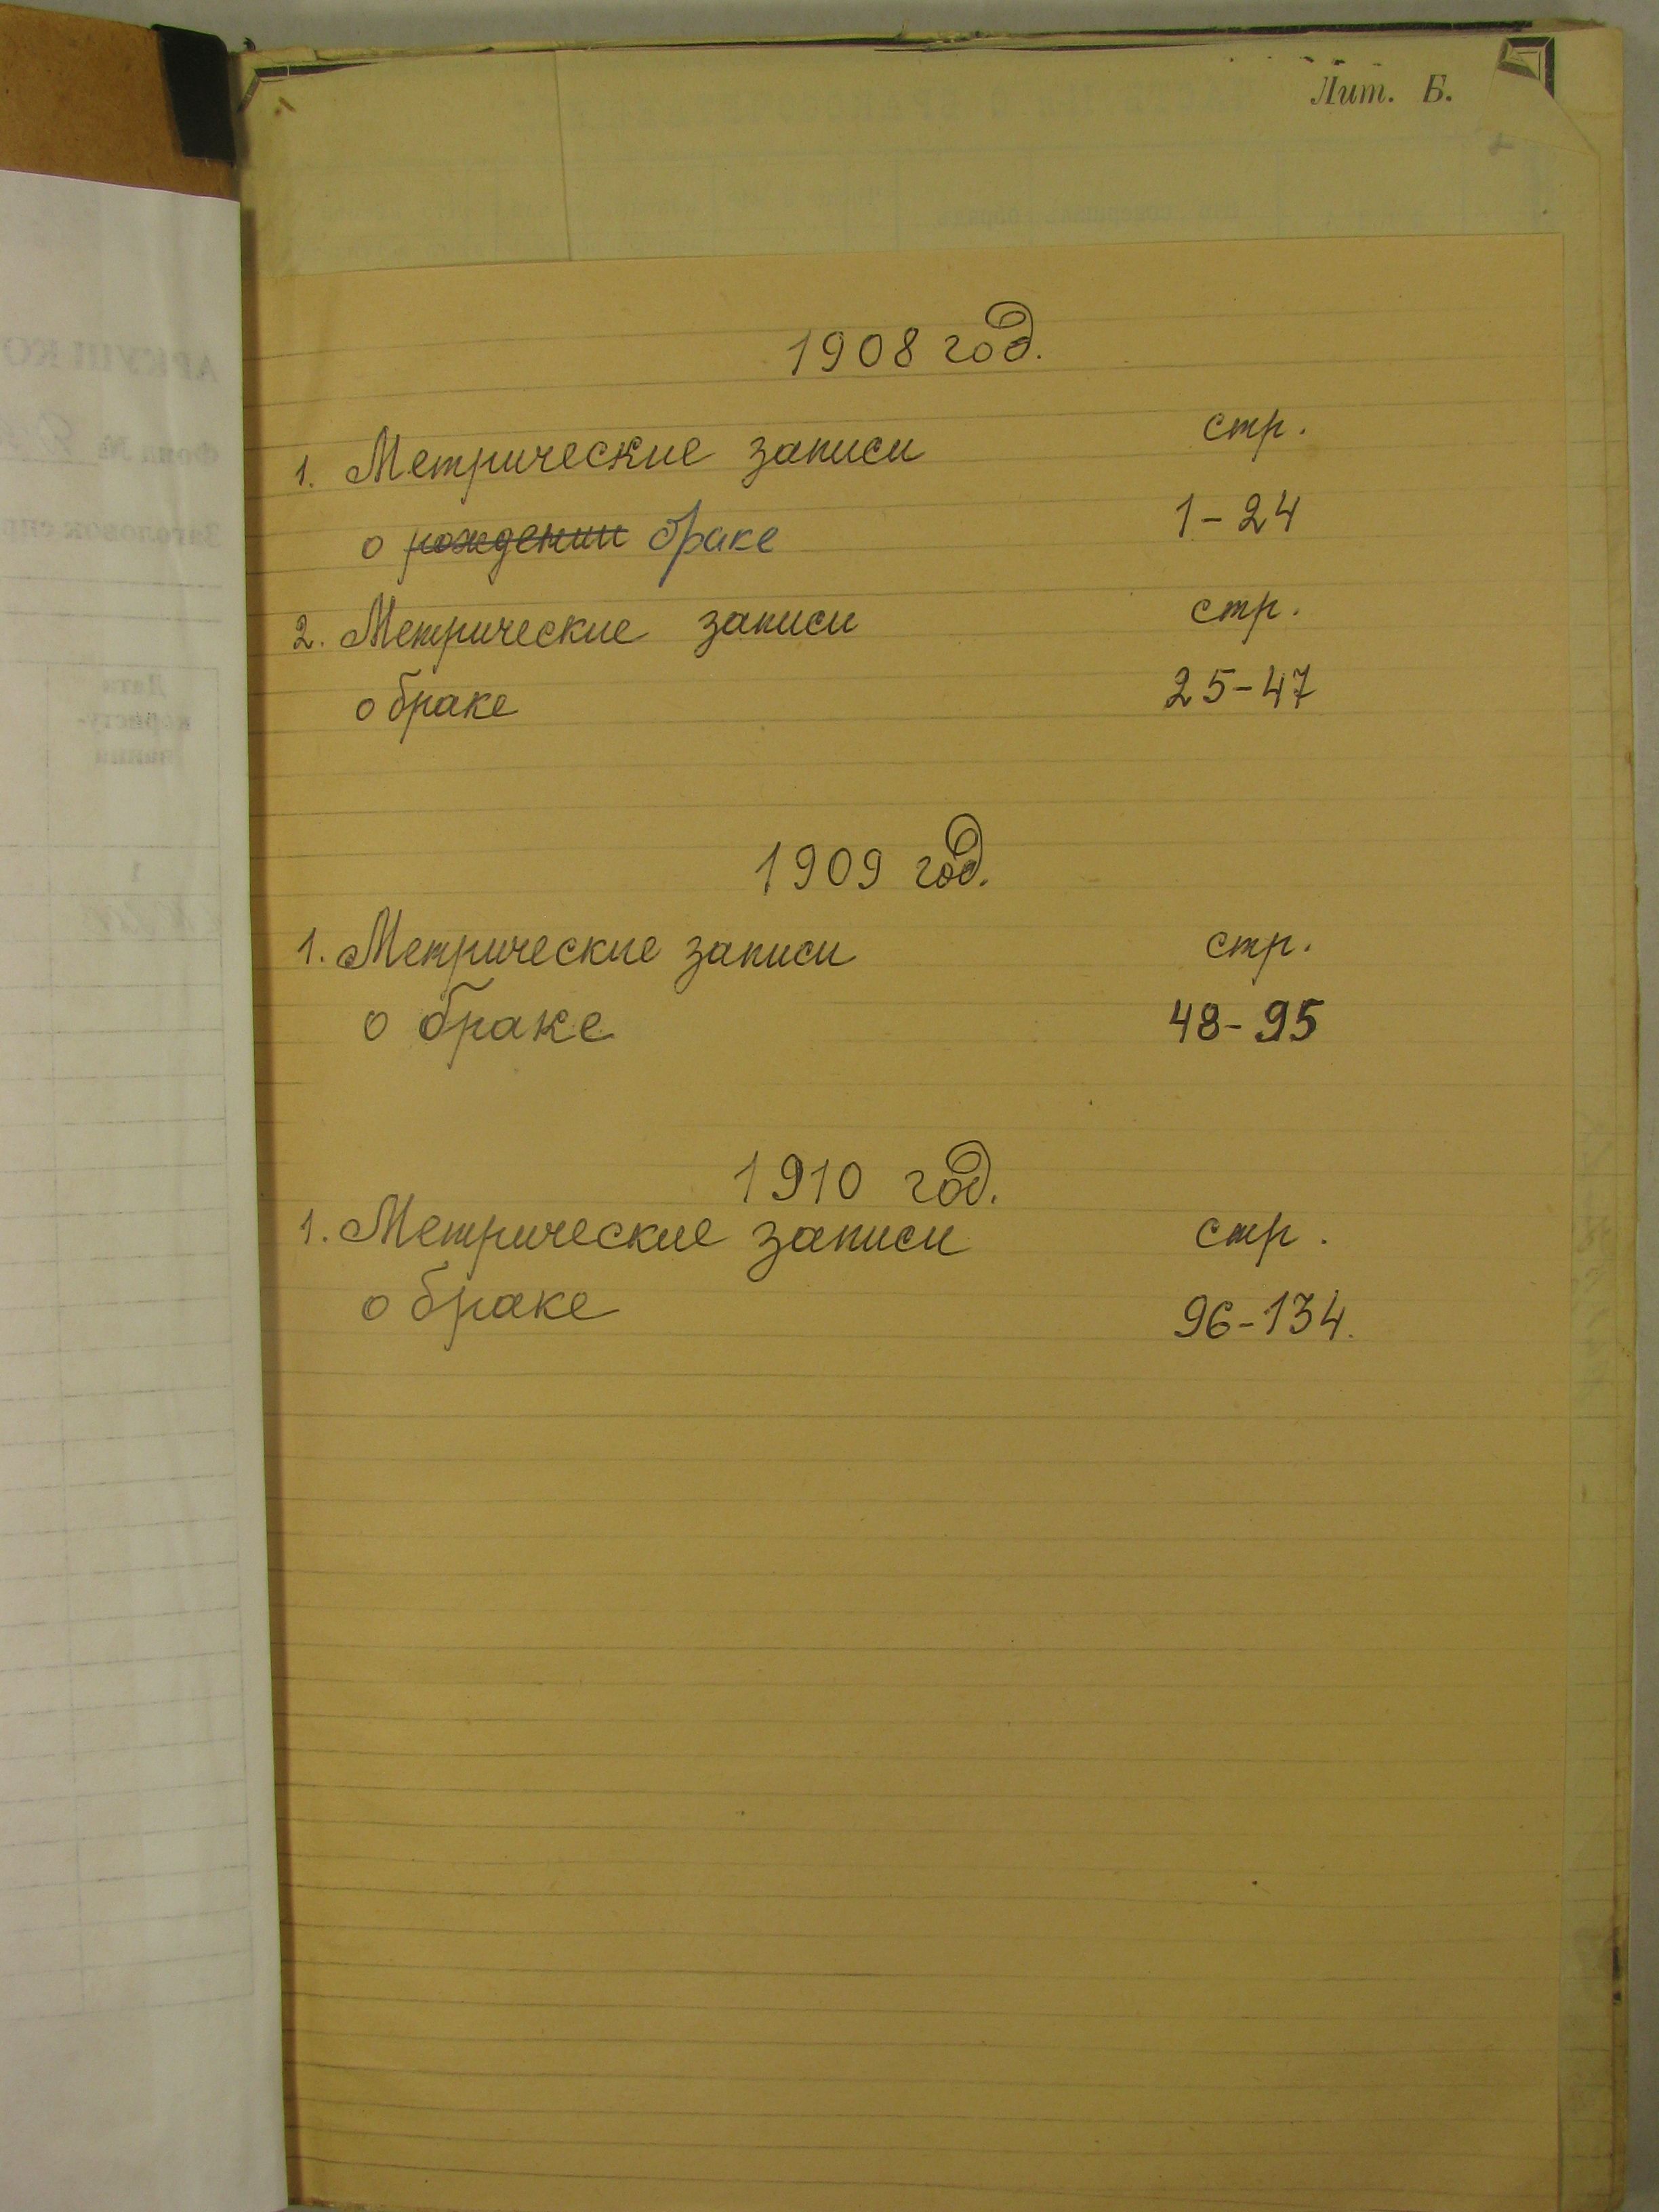 Лит. Б.
1908 год.
1. Метрические записи стр.
о рождении браке 1-24
2. Метрические записи стр.
о браке 25-47
1909 год.
1. Метрические записи стр.
о браке 48-95
1910 год.
1. Метрические записи стр.
о браке 96-134.